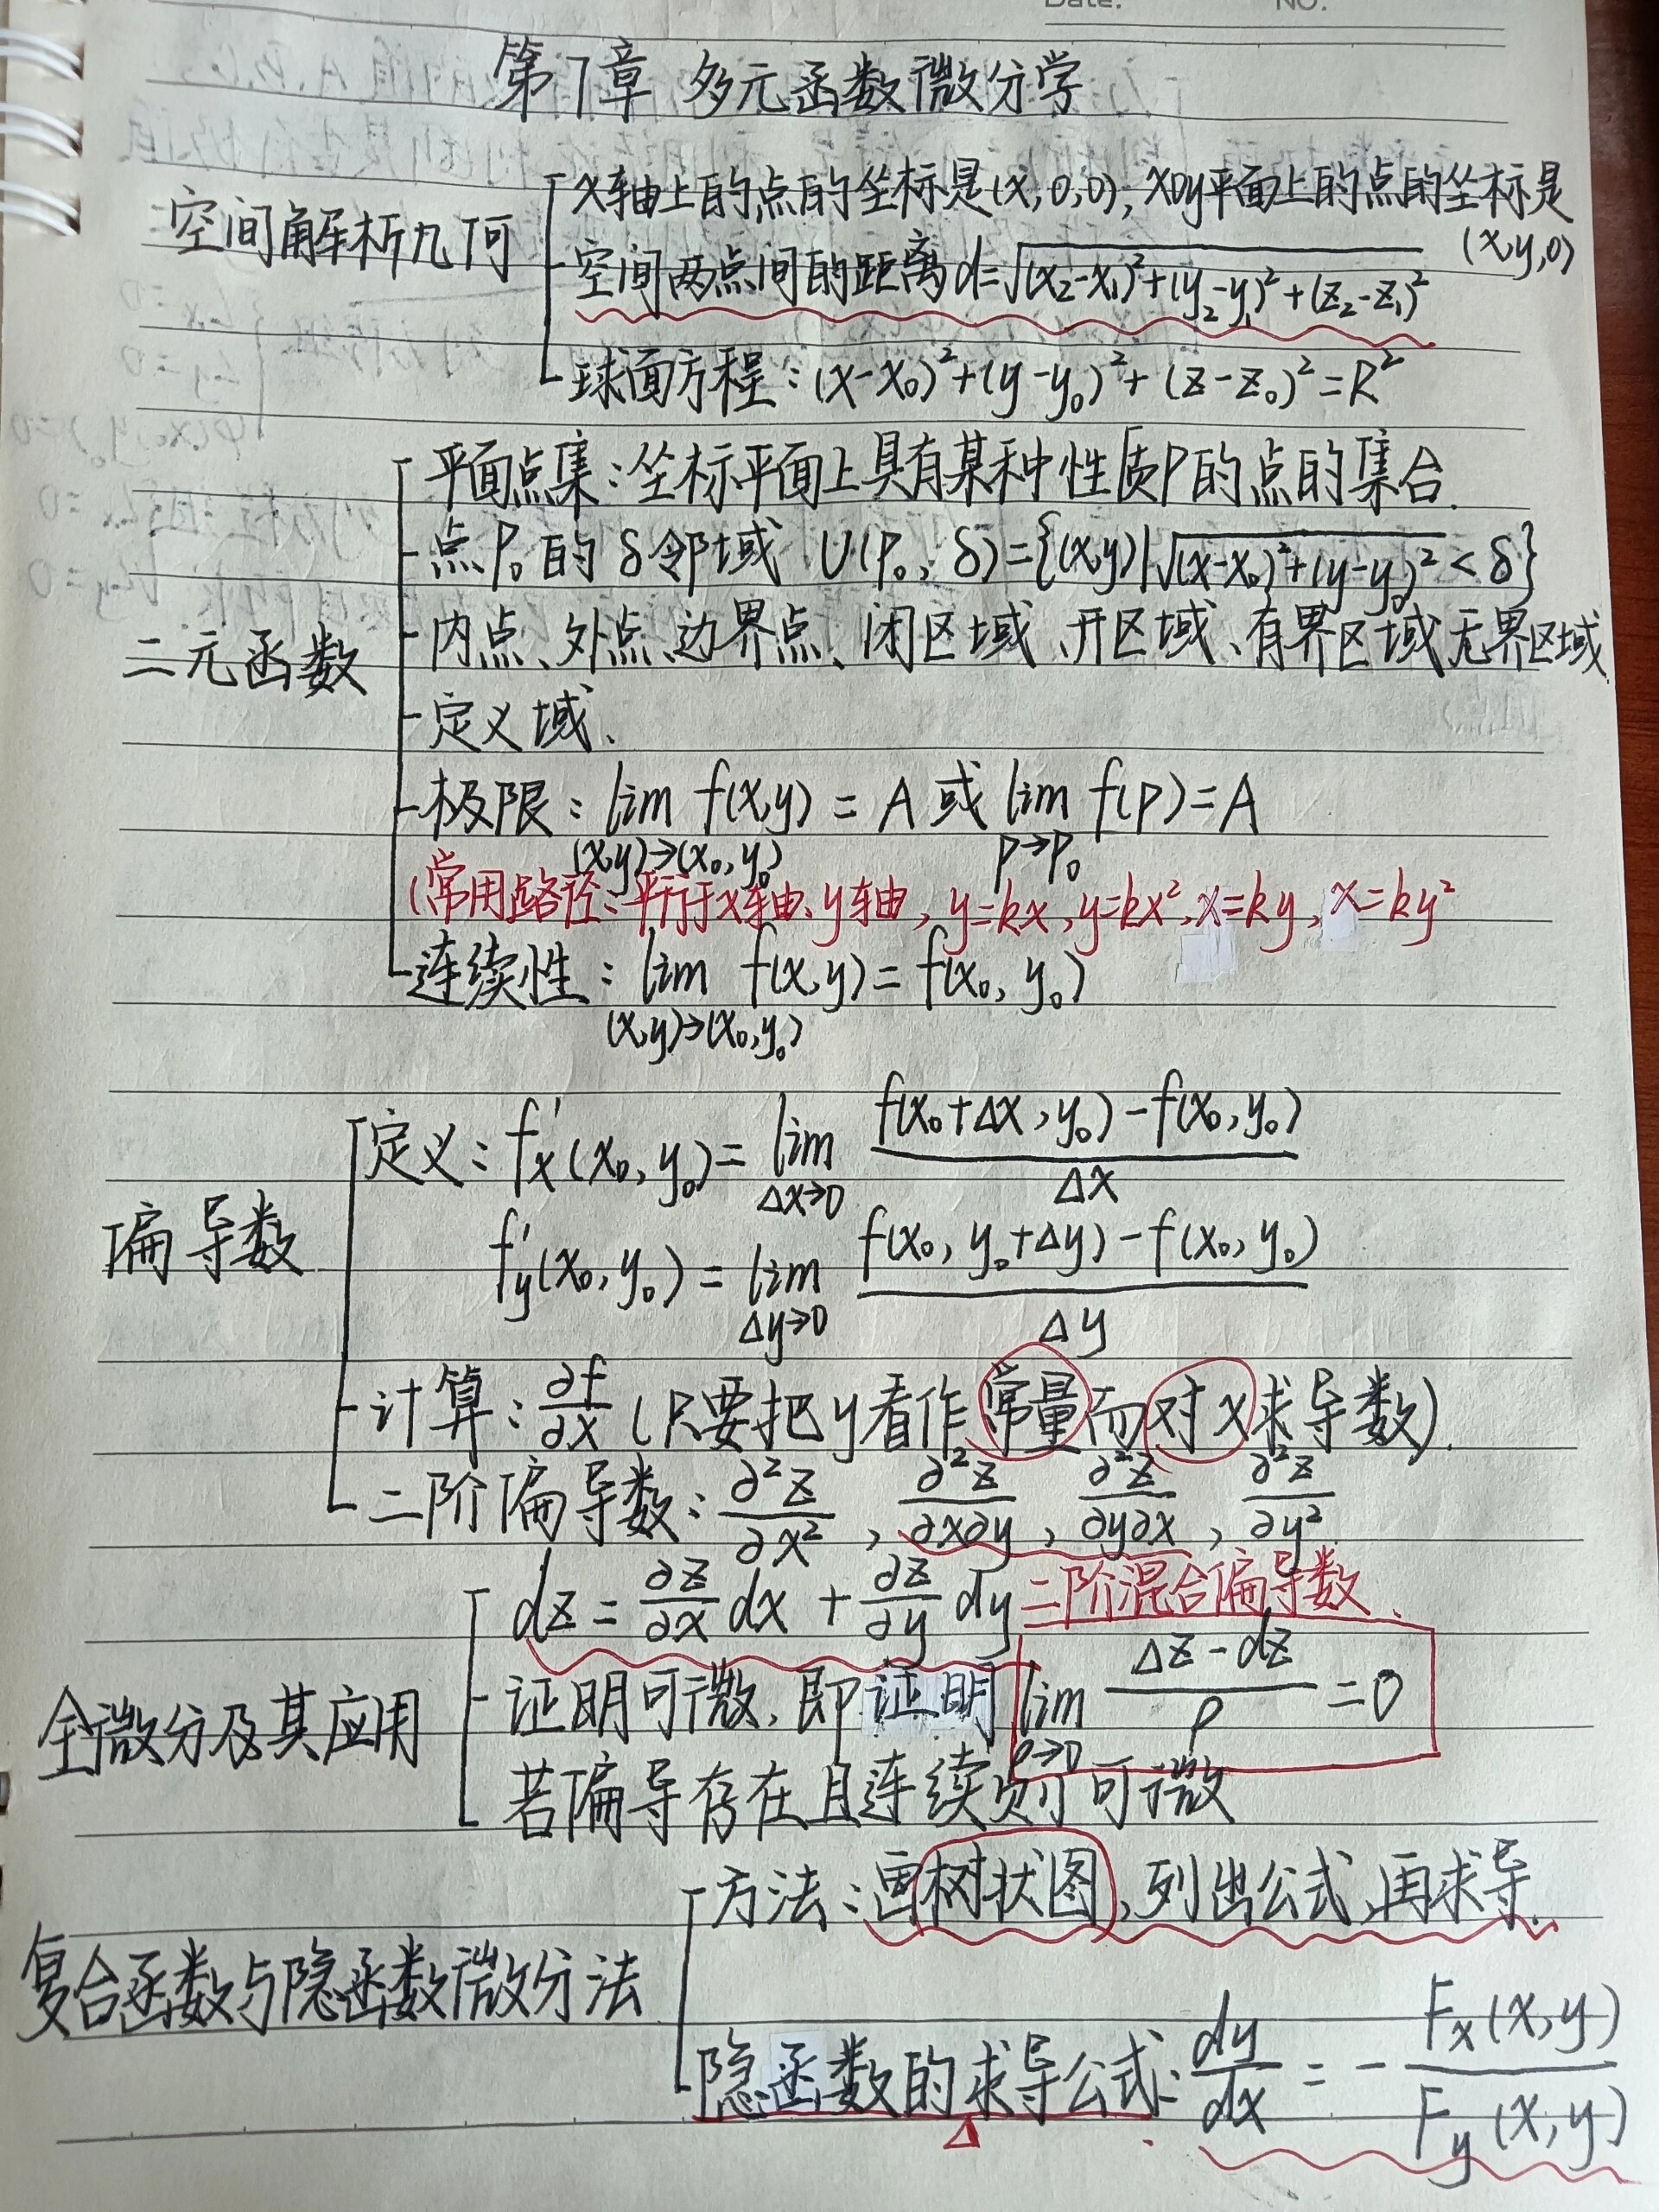 Date. NO.
第7章 多元函数微分学
空间解析几何
x轴上的点的坐标是(x,0,0), xoy平面上的点的坐标是(x,y,0)
空间两点间的距离d=√((x₂-x₁)²+(y₂-y₁)²+(z₂-z₁)²)
球面方程:(x-x₀)²+(y-y₀)²+(z-z₀)²=R²
二元函数
平面点集:坐标平面上具有某种性质P的点的集合.
点P₀的δ邻域 U(P₀,δ)={(x,y)|√((x-x₀)²+(y-y₀)²)<δ}
内点、外点、边界点、闭区域、开区域、有界区域 无界区域.
定义域、
极限:lim f(x,y) = A 或 lim f(P)=A
(x,y)→(x₀,y₀) P→P₀
(常用路径:平行于x轴、y轴, y=kx, y=kx², x=ky, x=ky²
连续性:lim f(x,y)=f(x₀,y₀)
(x,y)→(x₀,y₀)
偏导数
定义:f'ₓ(x₀,y₀)= lim_{Δx→0} (f(x₀+Δx,y₀)-f(x₀,y₀))/Δx
f'_y(x₀,y₀)= lim_{Δy→0} (f(x₀,y₀+Δy)-f(x₀,y₀))/Δy
计算:∂f/∂x (只要把y看作常量而对x求导数).
二阶偏导数:∂²z/∂x², ∂²z/∂x∂y, ∂²z/∂y∂x, ∂²z/∂y²
二阶混合偏导数.
全微分及其应用
dz = ∂z/∂x dx + ∂z/∂y dy
证明可微,即证明 lim_{ρ→0} (Δz-dz)/ρ =0
若偏导存在且连续则可微
复合函数与隐函数微分法
方法:画树状图,列出公式,再求导.
隐函数的求导公式:dy/dx = - Fₓ(x,y)/F_y(x,y)